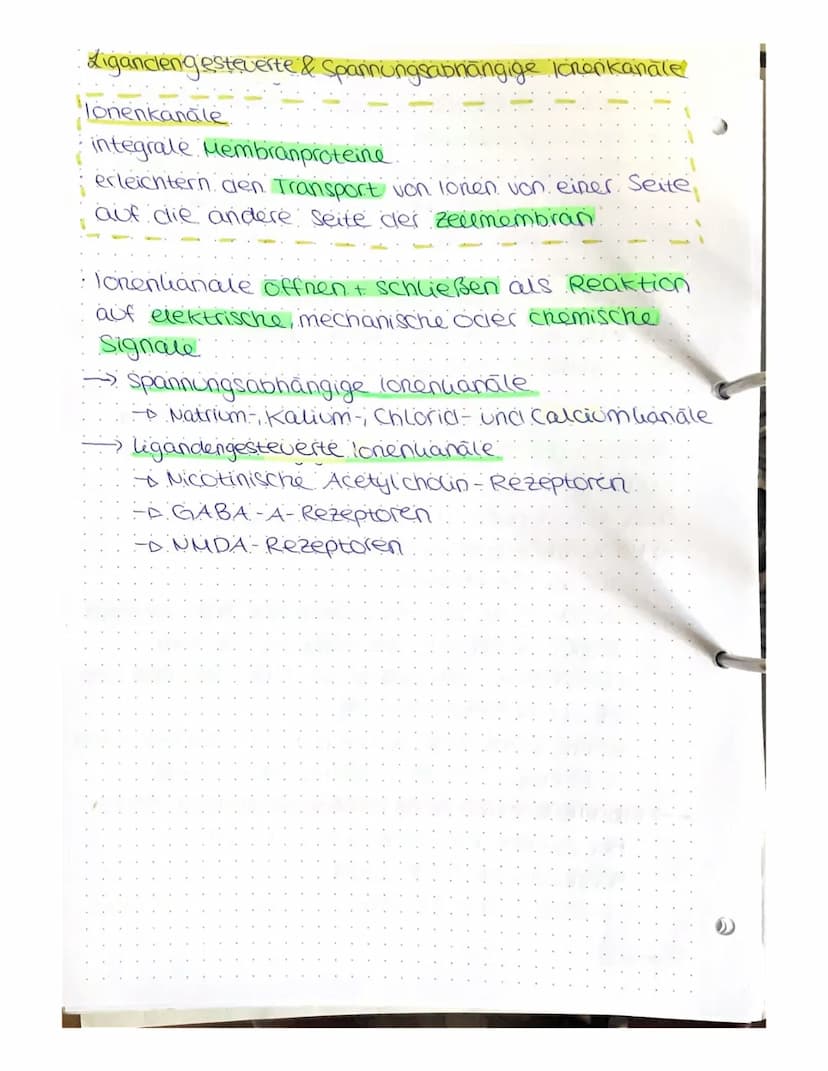 Ligandengesteuerte & Spannungsabhängige Ionenkanäle
Ionenkanäle
integrale Membranproteine
erleichtern den Transport von Ionen von einer Seite
auf die andere Seite der Zellmembran
Ionenkanäle öffnen + schließen als Reaktion
auf elektrische, mechanische oder chemische
Signale
→ Spannungsabhängige Ionenkanäle
→ Natrium-, Kalium-, Chlorid- und Calciumkanäle
→ Ligandengesteuerte Ionenkanäle
→ Nicotinische Acetylcholin-Rezeptoren
→ GABA-A-Rezeptoren
→ NMDA-Rezeptoren